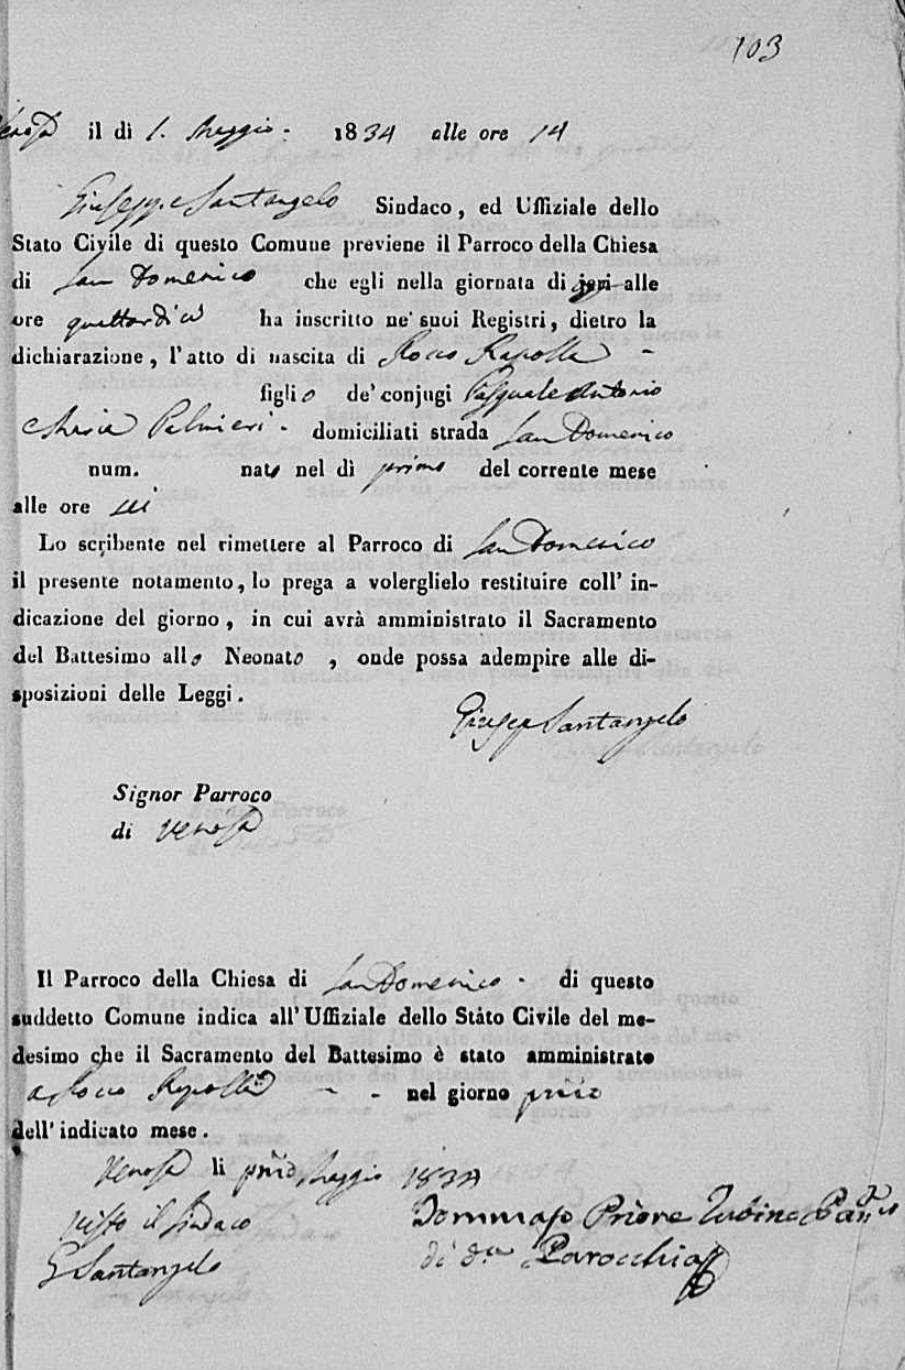 103
Venosa il dì 1. Maggio. 1834 alle ore 14
Giuseppe Santangelo Sindaco, ed Uffiziale dello
Stato Civile di questo Comune previene il Parroco della Chiesa
di San Domenico che egli nella giornata di oggi alle
ore quattordici ha inscritto ne' suoi Registri, dietro la
dichiarazione, l'atto di nascita di Rocco Rapolla -
figlio de' conjugi Pasquale Antonio
e Maria Palmieri - domiciliati strada San Domenico
num. nato nel dì primo del corrente mese
alle ore sei
Lo scribente nel rimettere al Parroco di San Domenico
il presente notamento, lo prega a volerglielo restituire coll' in-
dicazione del giorno, in cui avrà amministrato il Sacramento
del Battesimo allo Neonato , onde possa adempire alle di-
sposizioni delle Leggi.
Giusep Santangelo
Signor Parroco
di Venosa
Il Parroco della Chiesa di San Domenico - di questo
suddetto Comune indica all' Uffiziale dello Stato Civile del me-
desimo che il Sacramento del Battesimo è stato amministrato
a Rocco Rapolla - - nel giorno primo
dell' indicato mese.
Venosa li primo Maggio 1834
Visto il Sindaco
G Santangelo
Dommaso Priore Parco
di da Parocchia